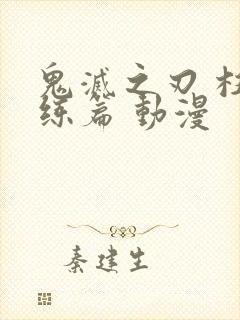 鬼滅之刃 柱
练篇 動漫
秦建生